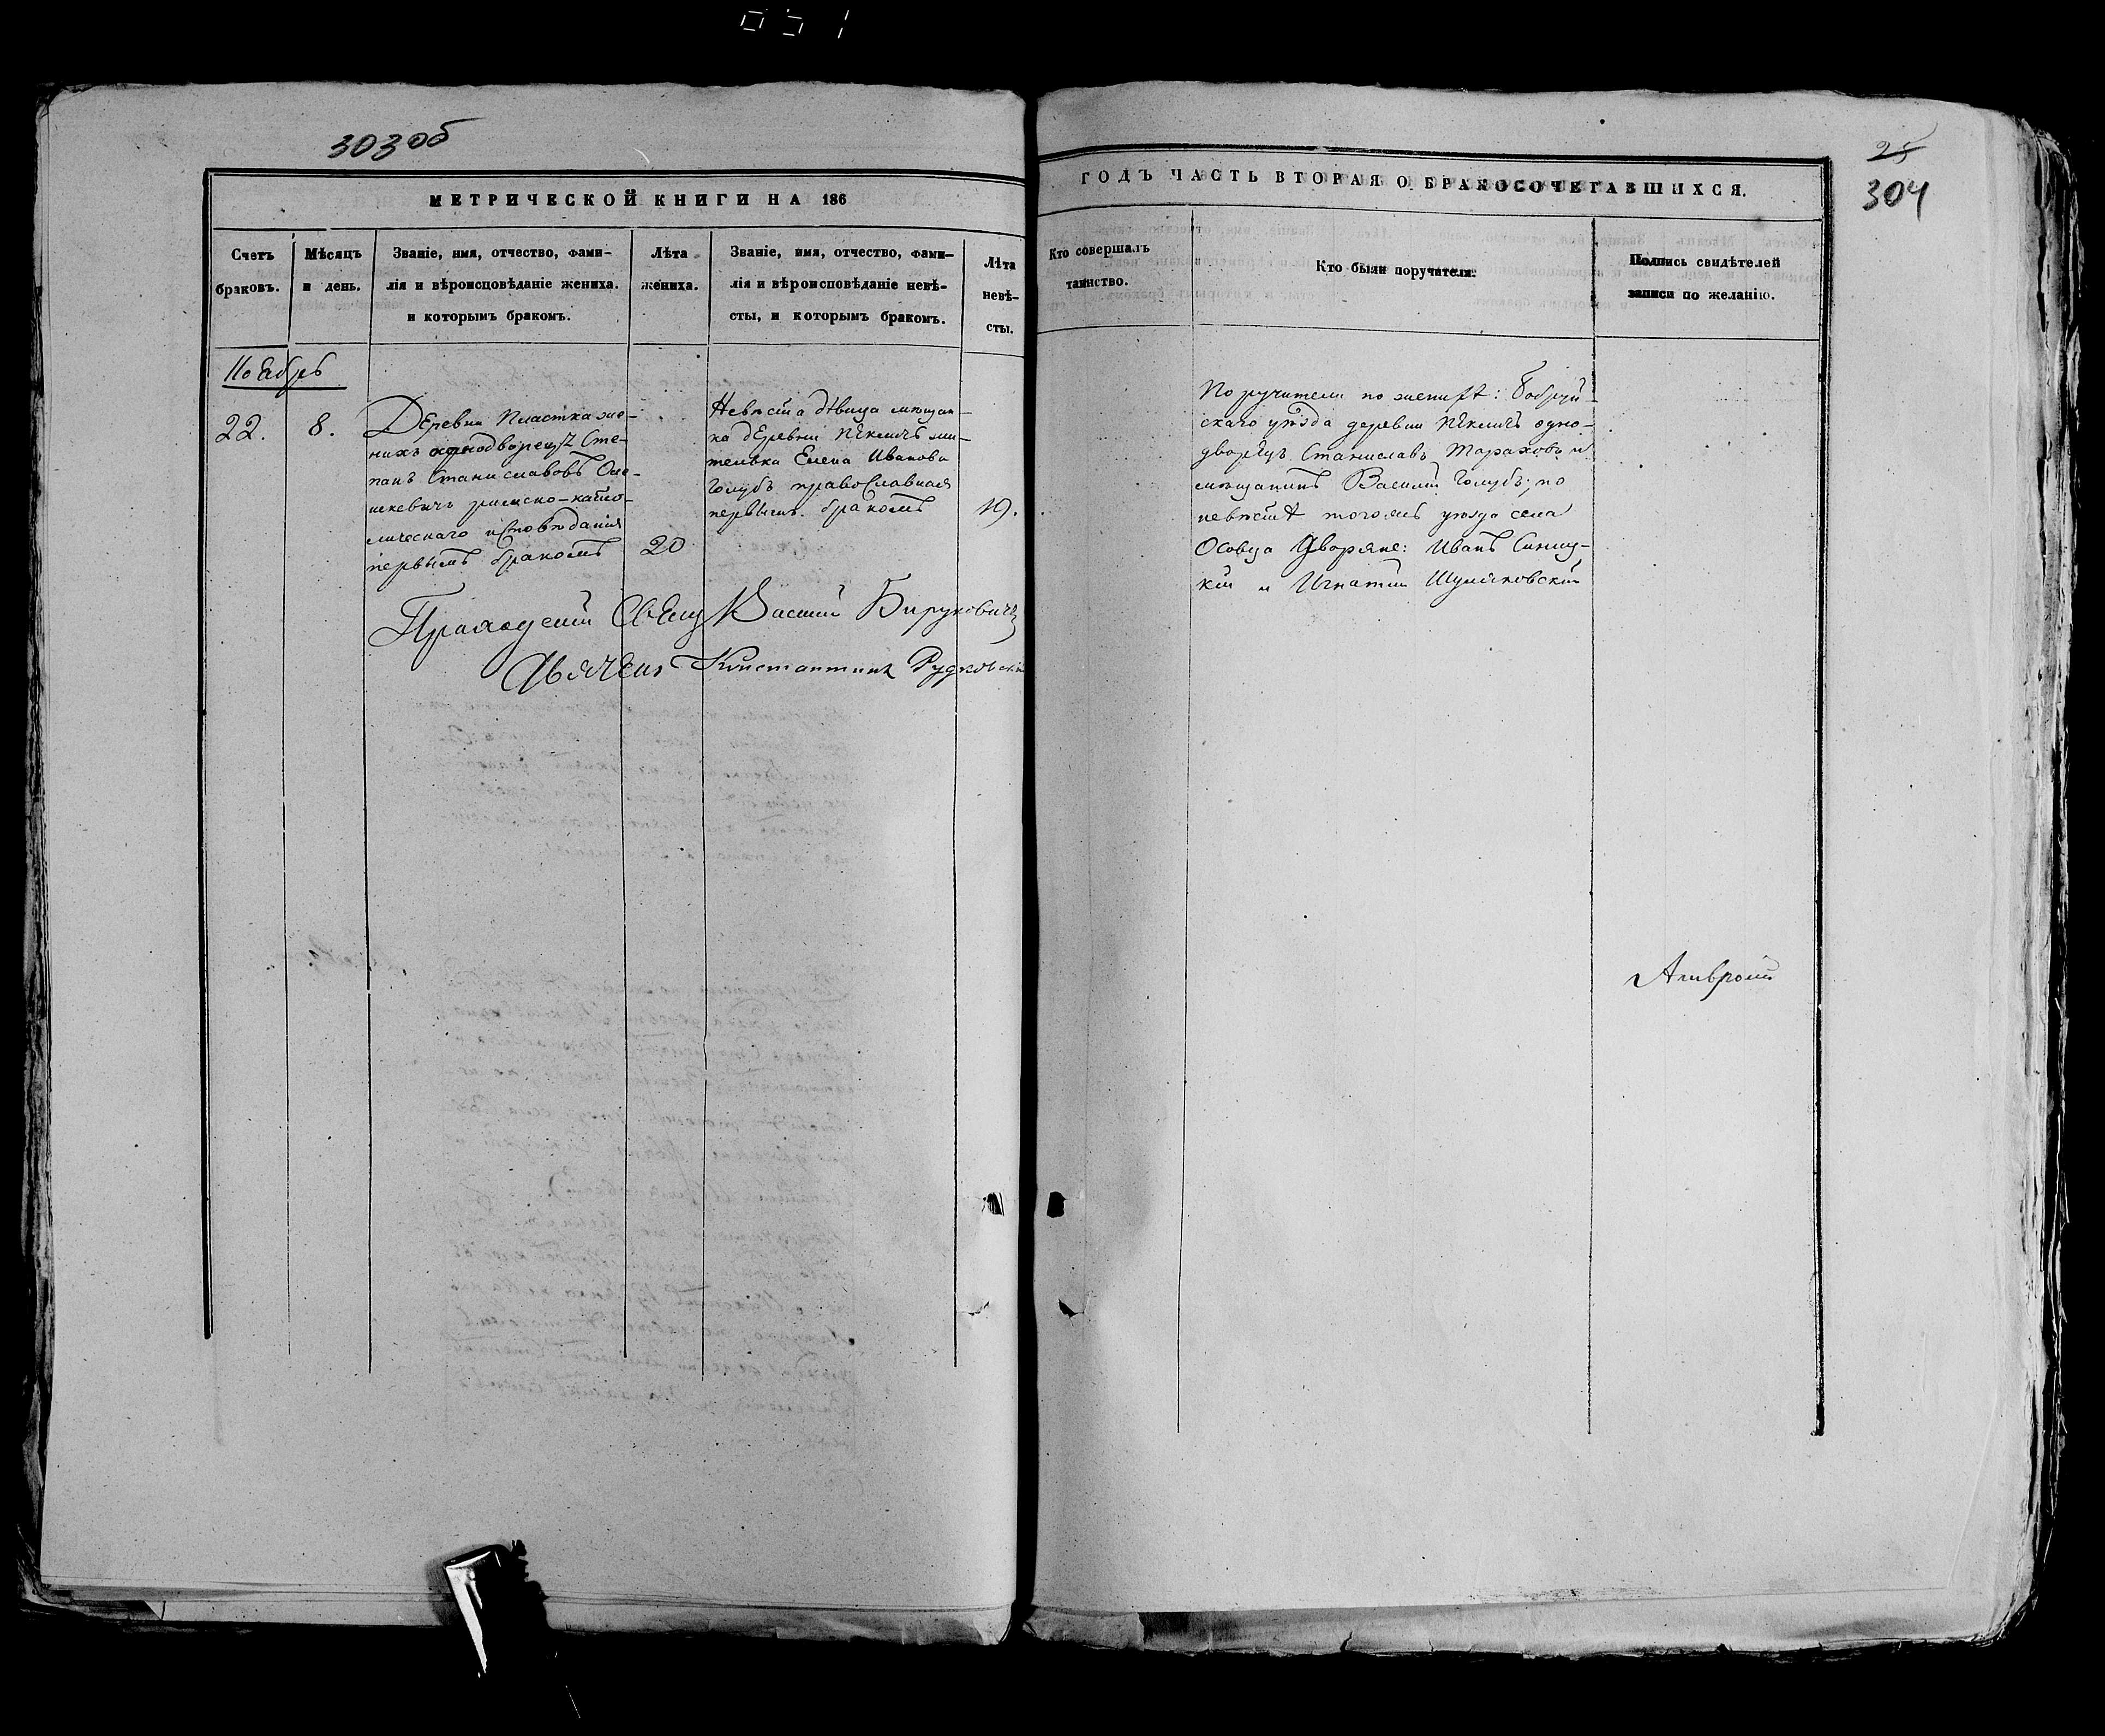 051
303 об
25
304
МЕТРИЧЕСКОЙ КНИГИ НА 186
ГОДЪ ЧАСТЬ ВТОРАЯ О БРАКОСОЧЕТАВШИХСЯ.
Счетъ
браковъ.
Мѣсяцъ
и день.
Званіе, имя, отчество, фами-
лія и вѣроисповѣданіе жениха.
и которымъ бракомъ.
Лѣта
жениха.
Званіе, имя, отчество, фами-
лія и вѣроисповѣданіе невѣ-
сты, и которымъ бракомъ.
Лѣта
невѣ-
сты.
Кто совершалъ
таинство.
Кто были поручатели.
Подпись свидѣтелей
записи по желанію.
Ноябрь
22.
8.
Деревни Пластка же-
нихъ однодворецъ Сте-
панъ Станиславовъ
римско-като-
лическаго исповѣданія
первымъ бракомъ
20
Невѣста дѣвица мѣщан-
ка деревни жи-
телька Елена Иванова
Голубъ православная
первымъ бракомъ
19.
Поручители по женихѣ: Бобруй-
скаго уѣзда деревни одно-
дворецъ Станиславъ и
мѣщанинъ Василій Голубъ, по
невѣстѣ тогожъ уѣзда села
Осовца Дворяне: Иванъ
и Игнатій
Приходскій Свящ Василій Бируковичъ
Дьячекъ Константинъ Рудковскій